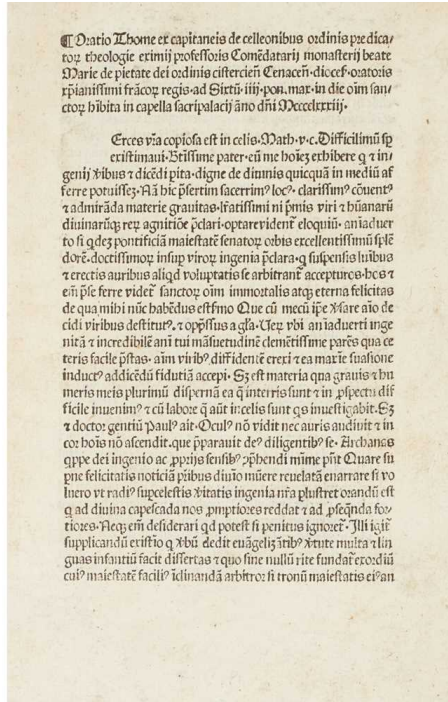 ¶ Oratio Thome ex capitaneis de celleonibus ordinis predica/
toꝝ theologie eximij professoris Comēdatarij monasterij beate
Marie de pietate dei ordinis cistercien̄ Cenaceń·diocef·oratoris
xp̄ianissimi frācoꝝ regis·ad Sixtū·iiij·pon·max·in die oīm san/
ctoꝝ hītita in capella sacripalacij āno dn̄i Mcccclxxxiij·
Erces vr̄a copiosa est in celis·Math·v·c·Difficilimū sꝑ
existimaui·Btīssime pater·eū me hoīez exhibere q̄ ⁊ in
genij viribus ⁊ dicēdi ꝑita·digne de diuinis quicquā in mediū af
ferre potuissez·Nā hic p̄sertim sacerrim⁹ loc⁹·clarissim⁹ cōuent⁹
⁊ admirāda materie grauitas· viri ⁊ hūanarū
diuinarūqꝫ reꝝ agnitiōe p̄clari·optarexident eloquiū·aniaduer
to si qdeȝ pontificiā maiestatē senatoꝝ orbis excellentissimū splē
dorē·doctissimoꝝ insuꝑ viroꝝ ingenia p̄clara·q suspensis
⁊ erectis auribus aliqd voluptatis se arbitrant᷑ accepturos·hos ⁊
em̄ p̄se ferre videt᷑ sanctoꝝ oīm immortalis atqꝫ eterna felicitas
de qua mihi nūc habēdus Que cū mecū āio de
cidi viribus destitut⁹·⁊ opp̄ssus a gl̄a·Ueꝝ vbi aniaduerti inge
nitā ⁊ incredibilē anī tui māsuetudinē clemētissime parēs qua ce
teris facile p̄stas·aīm virib⁹ diffidentē erexi ⁊ ea maxīe suasione
induct⁹ addicēdū fidutiā accepi·Sȝ est materia qua grauis ⁊ hu
meris meis plurimū dispernā ea q̄ interris sunt ⁊ in ꝓspectu dif
ficile inuenim⁹ ⁊ cū labore q̄ aūt incelis sunt qs inuestigabit·Sȝ
⁊ doctor gentiū Paul⁹ ait·Ocul⁹ nō vidit nec auris audiuit ⁊ in
cor hoīs nō ascendit·que p̄parauit de⁹ diligentib⁹ se·Archanas
qppe dei ingenio ac ꝓprijs sensib⁹ 9p̄hendi mīme pn̄t Quare su
pne felicitatis noticiā pribus diuīo mūere reuelatā enarrare si vo
luero vt radi⁹ supcelestis vītatis ingenia nr̄a plustret orandū est
q ad diuina capescenda nos ꝓmptiores reddat ⁊ ad ꝓseqnda for
tiores·Neqꝫ em̄ desiderari qd potest si penitus ignoret᷑·Illi igit᷑
supplicandū q vbū dedit euāgeliȝātib⁹ vtute multa ⁊ lin
guas infantiū facit dissertas ⁊ quo sine nullū rite fundat᷑ exordiū
cui⁹ maiestatē facili⁹ īclinandā arbitror si tronū maiestatis ei⁹ an